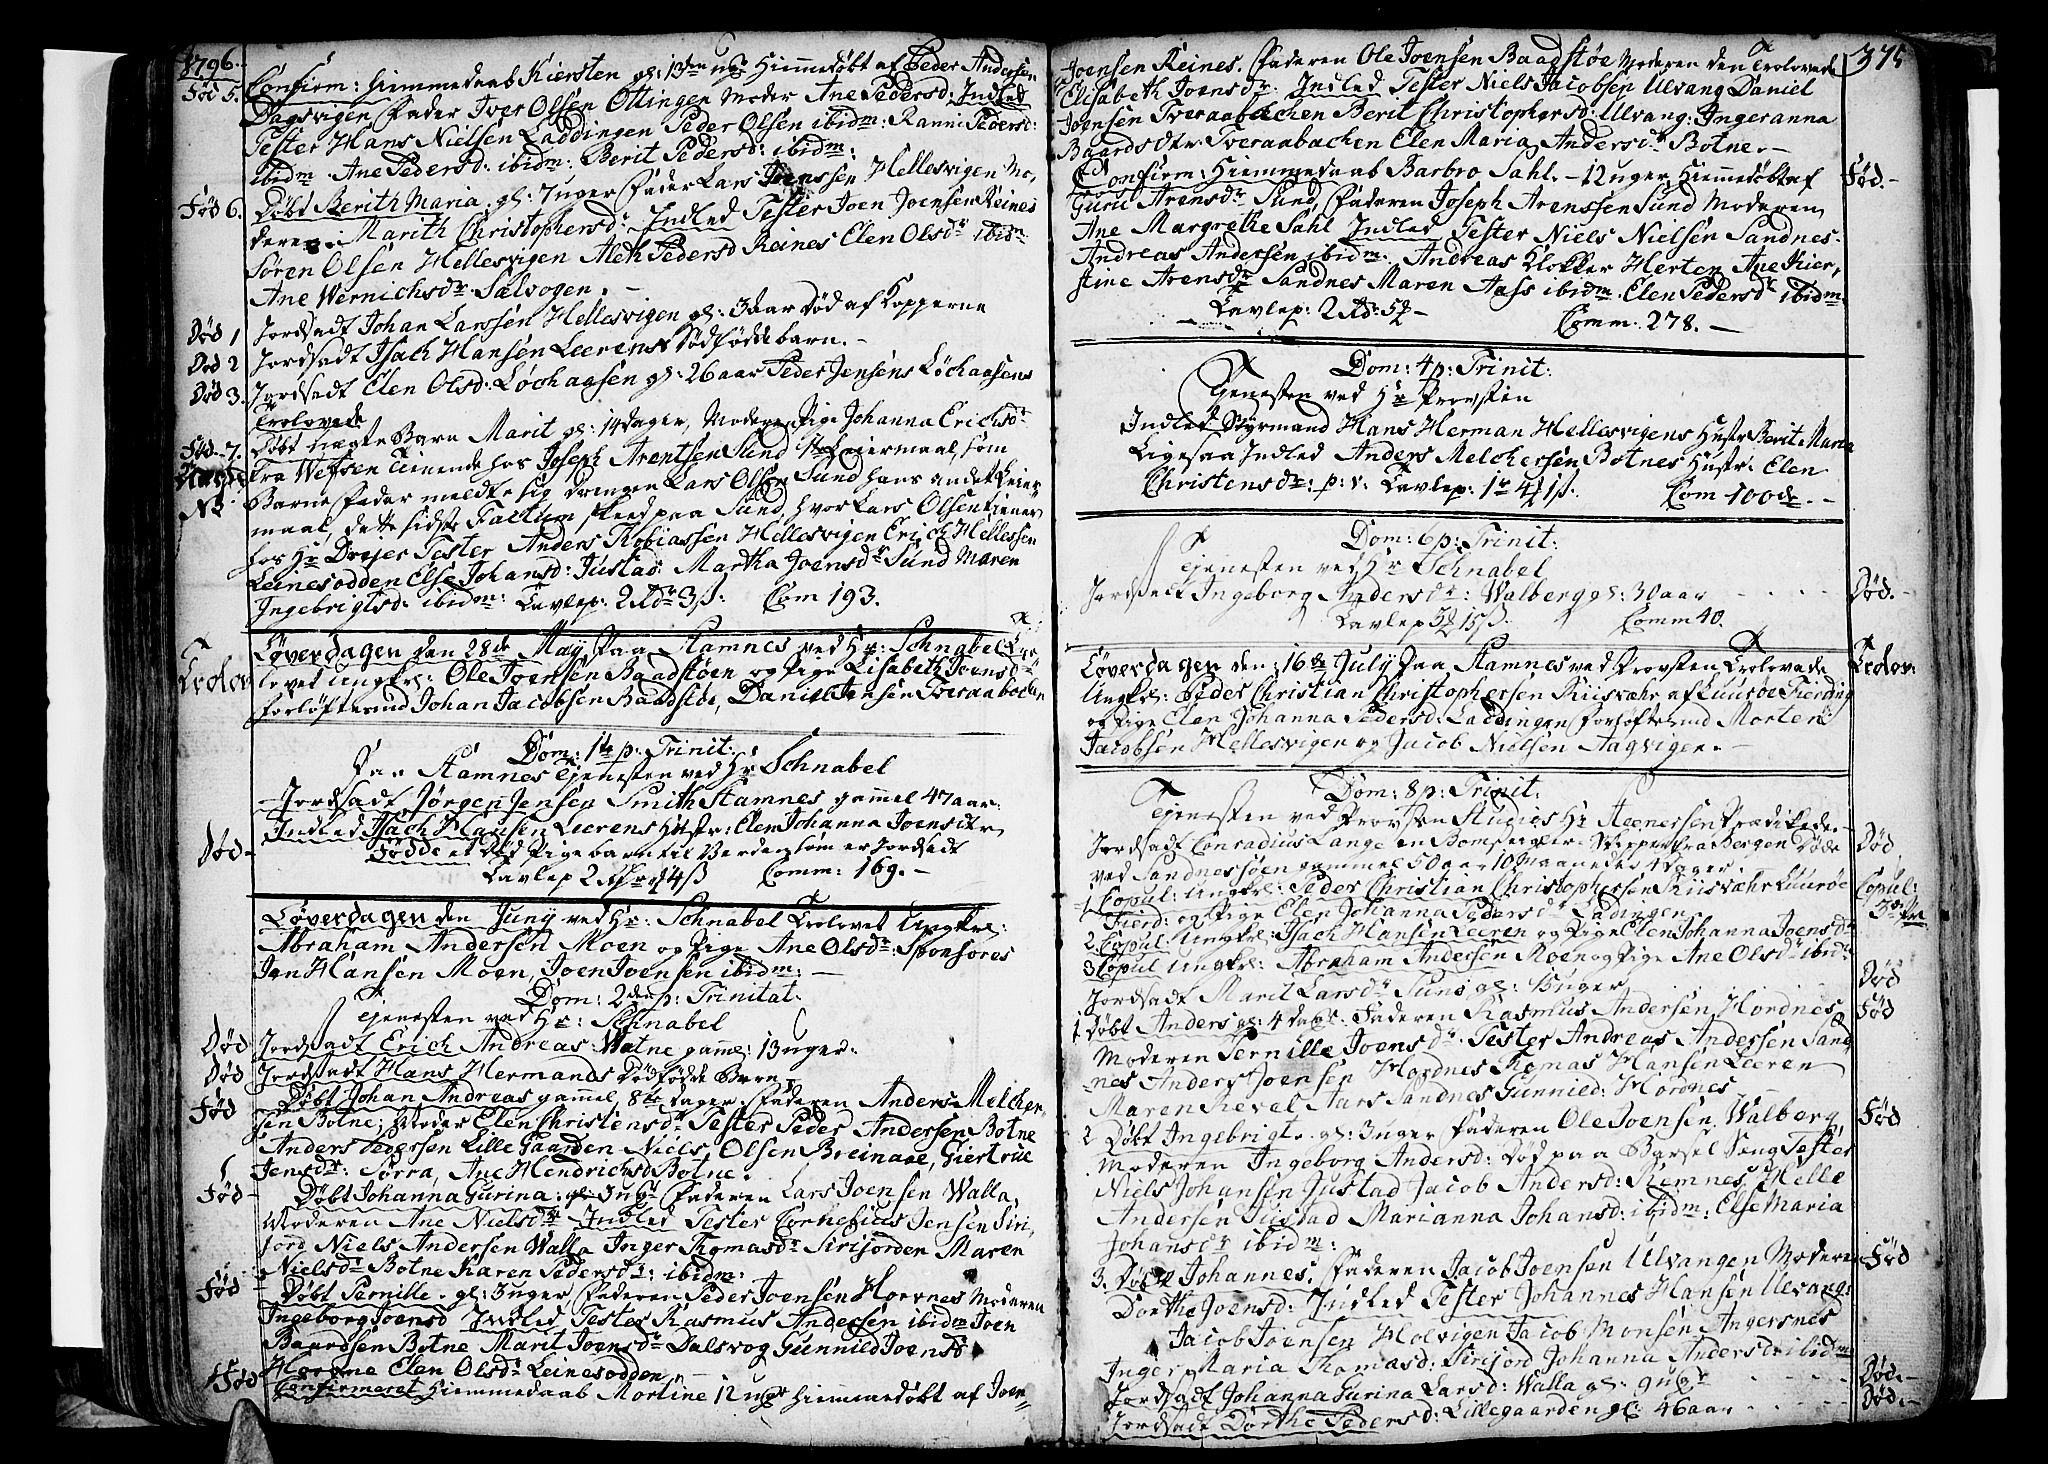 1796.
Confirm: Hiemmedaab Kiersten gl: 13 ug Hiemmedøbt af Peder Andersen
Fød 5.
Dagsvigen Fader Iver Olsen Ottingen Moder Ane Pedersd: Indled
Tester Hans Nielsen Laddingen Peder Olsen ibidm: Ranni Pedersd:
ibidm Ane Pedersd: ibidm: Berit Pedersd: ibidm:
Fød 6.
Døbt Berith Maria gl: 7 uger Fader Lars Joenssen Hellesvigen Mo-
deren Marith Christophersd: Indled Tester Joen Joensen Reines
Søren Olsen Hellesvigen Aleth Pedersd Reines Elen Olsdr ibidm
Ane Wernichsdr Salvogen.
Død 1
Jordsadt Johan Larssen Hellesvigen gl: 3 aar Død af Kopperne
Død 2
Jordsadt Isach Hansen Leerens Dødfødde barn.
Død 3.
Jordsadt Elen Olsd: Løchagsen gl: 26 aar Peder Jensens Løchaasens
Trolovede
Fød 7.
Døbt Uægte Barn Marit gl: 14 dager, Moderen Pige Johanna Erichsdr
Uægte
fra Wefsen tienende hos Joseph Arentsen Sund 1te Leiermaal, som
NB
Barne Fader meldte sig Drengen Lars Olsen Sund hans andet Leier
maal, dette sidste Factum skeed paa Sund, hvor Lars Olsen tiener
hos Hr Dreyer Tester Anders Tobiassen Hellesvigen Erich Hellessen
Leinesodden Else Johansd: Justad Martha Joensdr Sund Maren
Ingebrigtsd: ibidm: Tavlep: 2 3ß. Com 193.
Løverdagen den 28de May paa Stamnes ved Hr: Schnabel Tro-
Trolov
lovet Ungkl: Ole Joensen Baadstøen og Pige Lisabeth Joensdr
forløftesmd Johan Jacobsen Baadstøe, Daniel Joensen Tveraabachen
Dom: 1te p: Trinit:
Paa Stamnes Tjenesten ved Hr Schnabel
Jordsadt Jørgen Jensen Smith Stamnes gammel 47 aar:
Indled Isach Hansen Leerens Hustr: Elen Johanna Joensdtr
Død
Fødde et Død Pigebarn til Verden som er Jordsadt
Tavlep 2 4ß Comm: 169.
Løverdagen den Juny ved Hr: Schnabel Trolovet Ungkrl:
Abraham Andersen Moen og Pige Ane Olsdr: Sponsores
Jan Hansen Moen, Joen Joensen ibidm:
Dom: 2den p: Trinitat:
Tjenesten ved Hr: Schnabel
Død
Jordsadt Erich Andreas Watne gamml: 13 uger.
Død
Jordsadt Hans Hermands Dødfødde Barn
Fød
Døbt Johan Andreas gammel, 8te dager Faderen Anders Melcher-
sen Botne, Moder Elen Christensdr Tester Peder Andersen Botne
Anders Pedersen Lille Gaarden Niels Olsen Breinaae, Giertrue
Jensdr: Sørra, Ane Hendrichsd Botne.
Fød
Døbt Johanna Gurina: gl: 3 ugr Faderen Lars Joensen Walla,
Moderen Ane Nielsdr Indled Tester Cornelius Jensen Siri-
jord Niels Andersen Walla Inger Thomasdr Sirijorden Maren
Nielsdr Botne Karen Pedersdr: ibidm:
Fød
Døbt Pernille gl: 3 uger Faderen Peder Joensen Hornes Moderen
Ingeborg Joensd Indled Tester Rasmus Andersen ibidm Joen
Baardsen Botne Marit Joensdr Dalsvog Gunnild Joensd
Elen Olsdr Leinesodden
Fød
Confirmeret Hiemmedaab Mortine 12 ugr Hiemmedøbt af Joen-
375
Joensen Reines. Faderen Ole Joensen Baadstøe Moderen den Trolovede
Elisabeth Joensdr. Indled Tester Niels Jacobsen Ulvang Daniel
Joensen Tveraabachen Berit Christophersd: Ulvang: Ingeranna
Baardsdtr Tveraabachen Elen Maria Andersdr Botne.
Confirm: Hiemmedaab Barbro Sahl. 12 uger Hiemmedøbt af
Fød.
Guru Arensdr Sund, Faderen Joseph Arenssen Sund Moderen
Ane Margrethe Sahl Indled Tester Niels Nielsen Sandnes.
Andreas Andersen ibidm. Andreas Klokker Herten Ane Kier,
stine Arensdr Sandnes Maren Aass ibidm. Elen Pedersdr ibidm
Tavlep: 2 5 Comm: 278.
Dom: 4 p: Trinit:
Tjenesten ved Hr Provsten
Indled Styrmand Hans Herman Hellesvigens Hustr Berit Maria
Ligesaa Indled Anders Melchersen Botnes Hustr: Elen
Christensdr: p: v: Tavlep: 1r 4 1ß. Com 100de.
Dom: 6 p: Trinit:
Tjenesten ved Hr Schnabel
Jordsadt Ingeborg Andersdr: Walberg gl: 30 aar
Død.
Tavlep 3 15ß. Comm 40.
Løverdagen den 16de July paa Stamnes ved Provsten Trolovede
Trolov:
Ungkl: Peder Christian Christophersen Kiisvæhr af Luurøe Fierding
og Pige Elen Johanna Pedersd: Laddingen Forløftesmd Morten
Jacobsen Hellesvigen og Jacob Nielsen Aagvigen.
Dom: 8 p: Trinit:
Tjenesten ved Provsten Studios Hr Steenersen Prædikede.
Jordsadt Conradius Lange en Bomseigler Skipper fra Bergen Døde
Død
ved Sandnessøen gammel 50 aar 10 Maaneder 4 dager.
1 Copul: Ungkrl: Peder Christian Christophersen Kiisvæhr Luurøe
Copul:
3de Pr
Fierd: og Pige Elen Johanna Pedersdr Ladingen
2 Copul Ungkrl: Isach Hansen Leeren og Pige Elen Johanna Joensdr
3 Copul Ungkrl: Abraham Andersen Moen og Pige Ane Olsdr ibidm
Jordsadt Marit Larsdr Suns gl: 15 uger
Død
1 Døbt Anders gl: 4 dage. Faderen Rasmus Andersen Hordnes
Fød
Moderen Pernille Joensdr. Tester Andreas Andersen Sand
nes Anders Joensen Hordnes Thomas Hansen Leeren
Maren Revel Aars Sandnes Gunnild: Hordnes
2 Døbt Ingebrigt gl: 3 uger Faderen Ole Joensen Walberg,
Fød
Moderen Ingeborg Andersd: Død paa Barsel Seng Tester
Niels Johansen Justad Jacob Andersd: Remnes Helle
Andersen Justad Marianna Johansd: ibidm: Else Maria
Johansdr ibidm:
3. Døbt Johannes. Faderen Jacob Joensen Ulvangen Moderen
Fød
Dorthe Joensd: Indled Tester Johannes Hansen Ulvang
Jacob Joensen Holvigen Jacob Monsen Angersnes
Inger Maria Thomasd: Sirijord Johanna Andersdr ibidm
Jordsadt Johanna Gurina Larsd: Walla gl: 9 ugr
Død.
Jordsadt Dorthe Pedersd: Lillegaarden gl: 46 aar
Død.